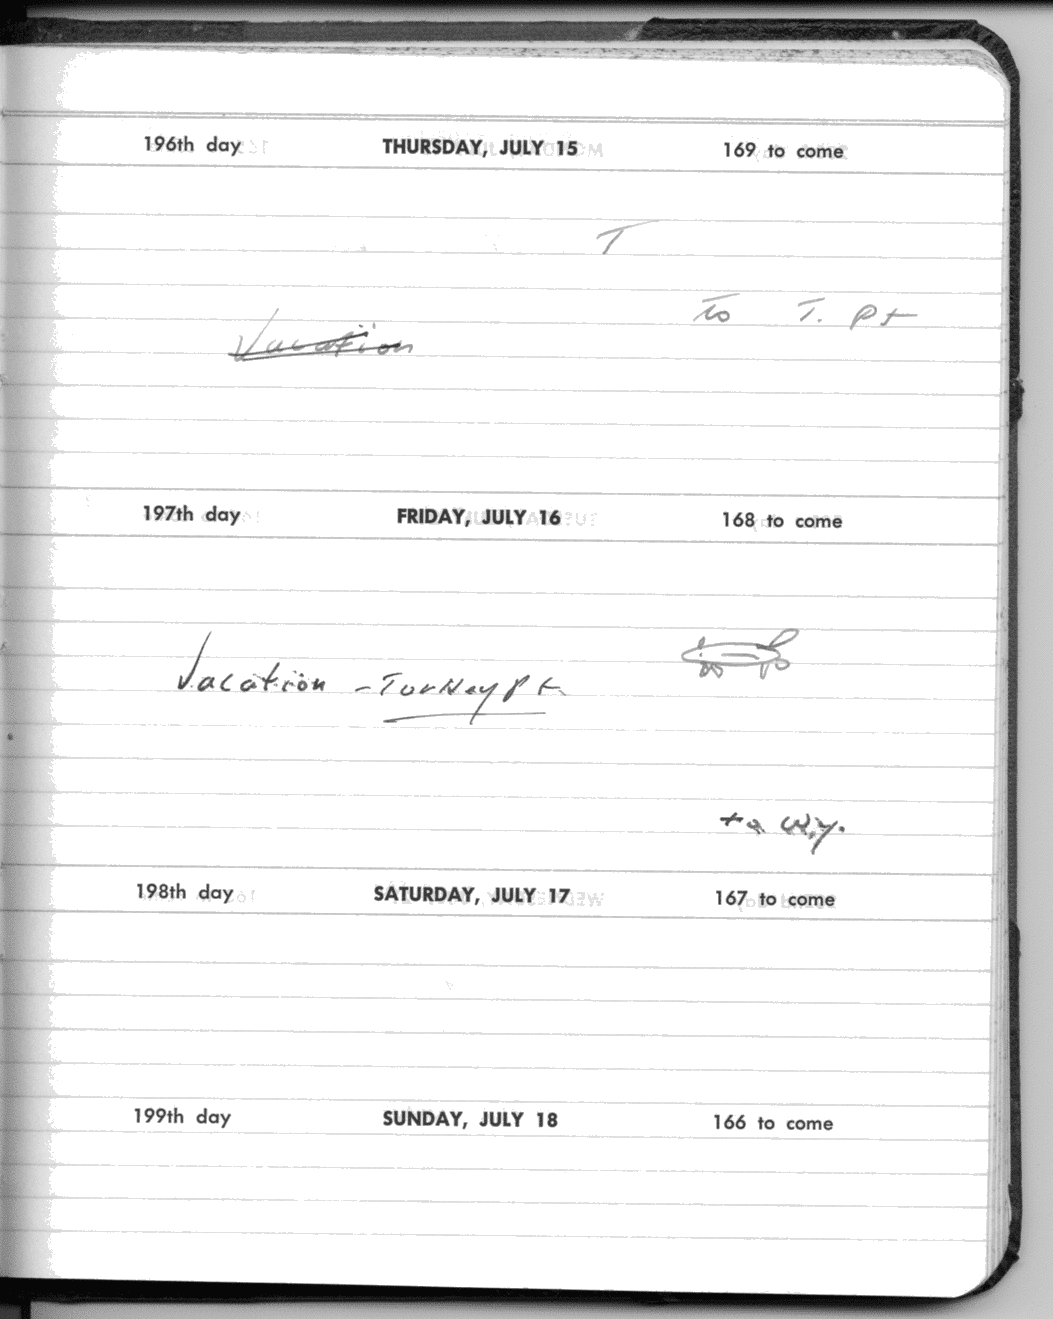 196th day THURSDAY, JULY 15 169 to come
T
To T. Pt
Vacation
197th day FRIDAY, JULY 16 168 to come
Vacation - Turkey Pt
to W.Y.
198th day SATURDAY, JULY 17 167 to come
199th day SUNDAY, JULY 18 166 to come